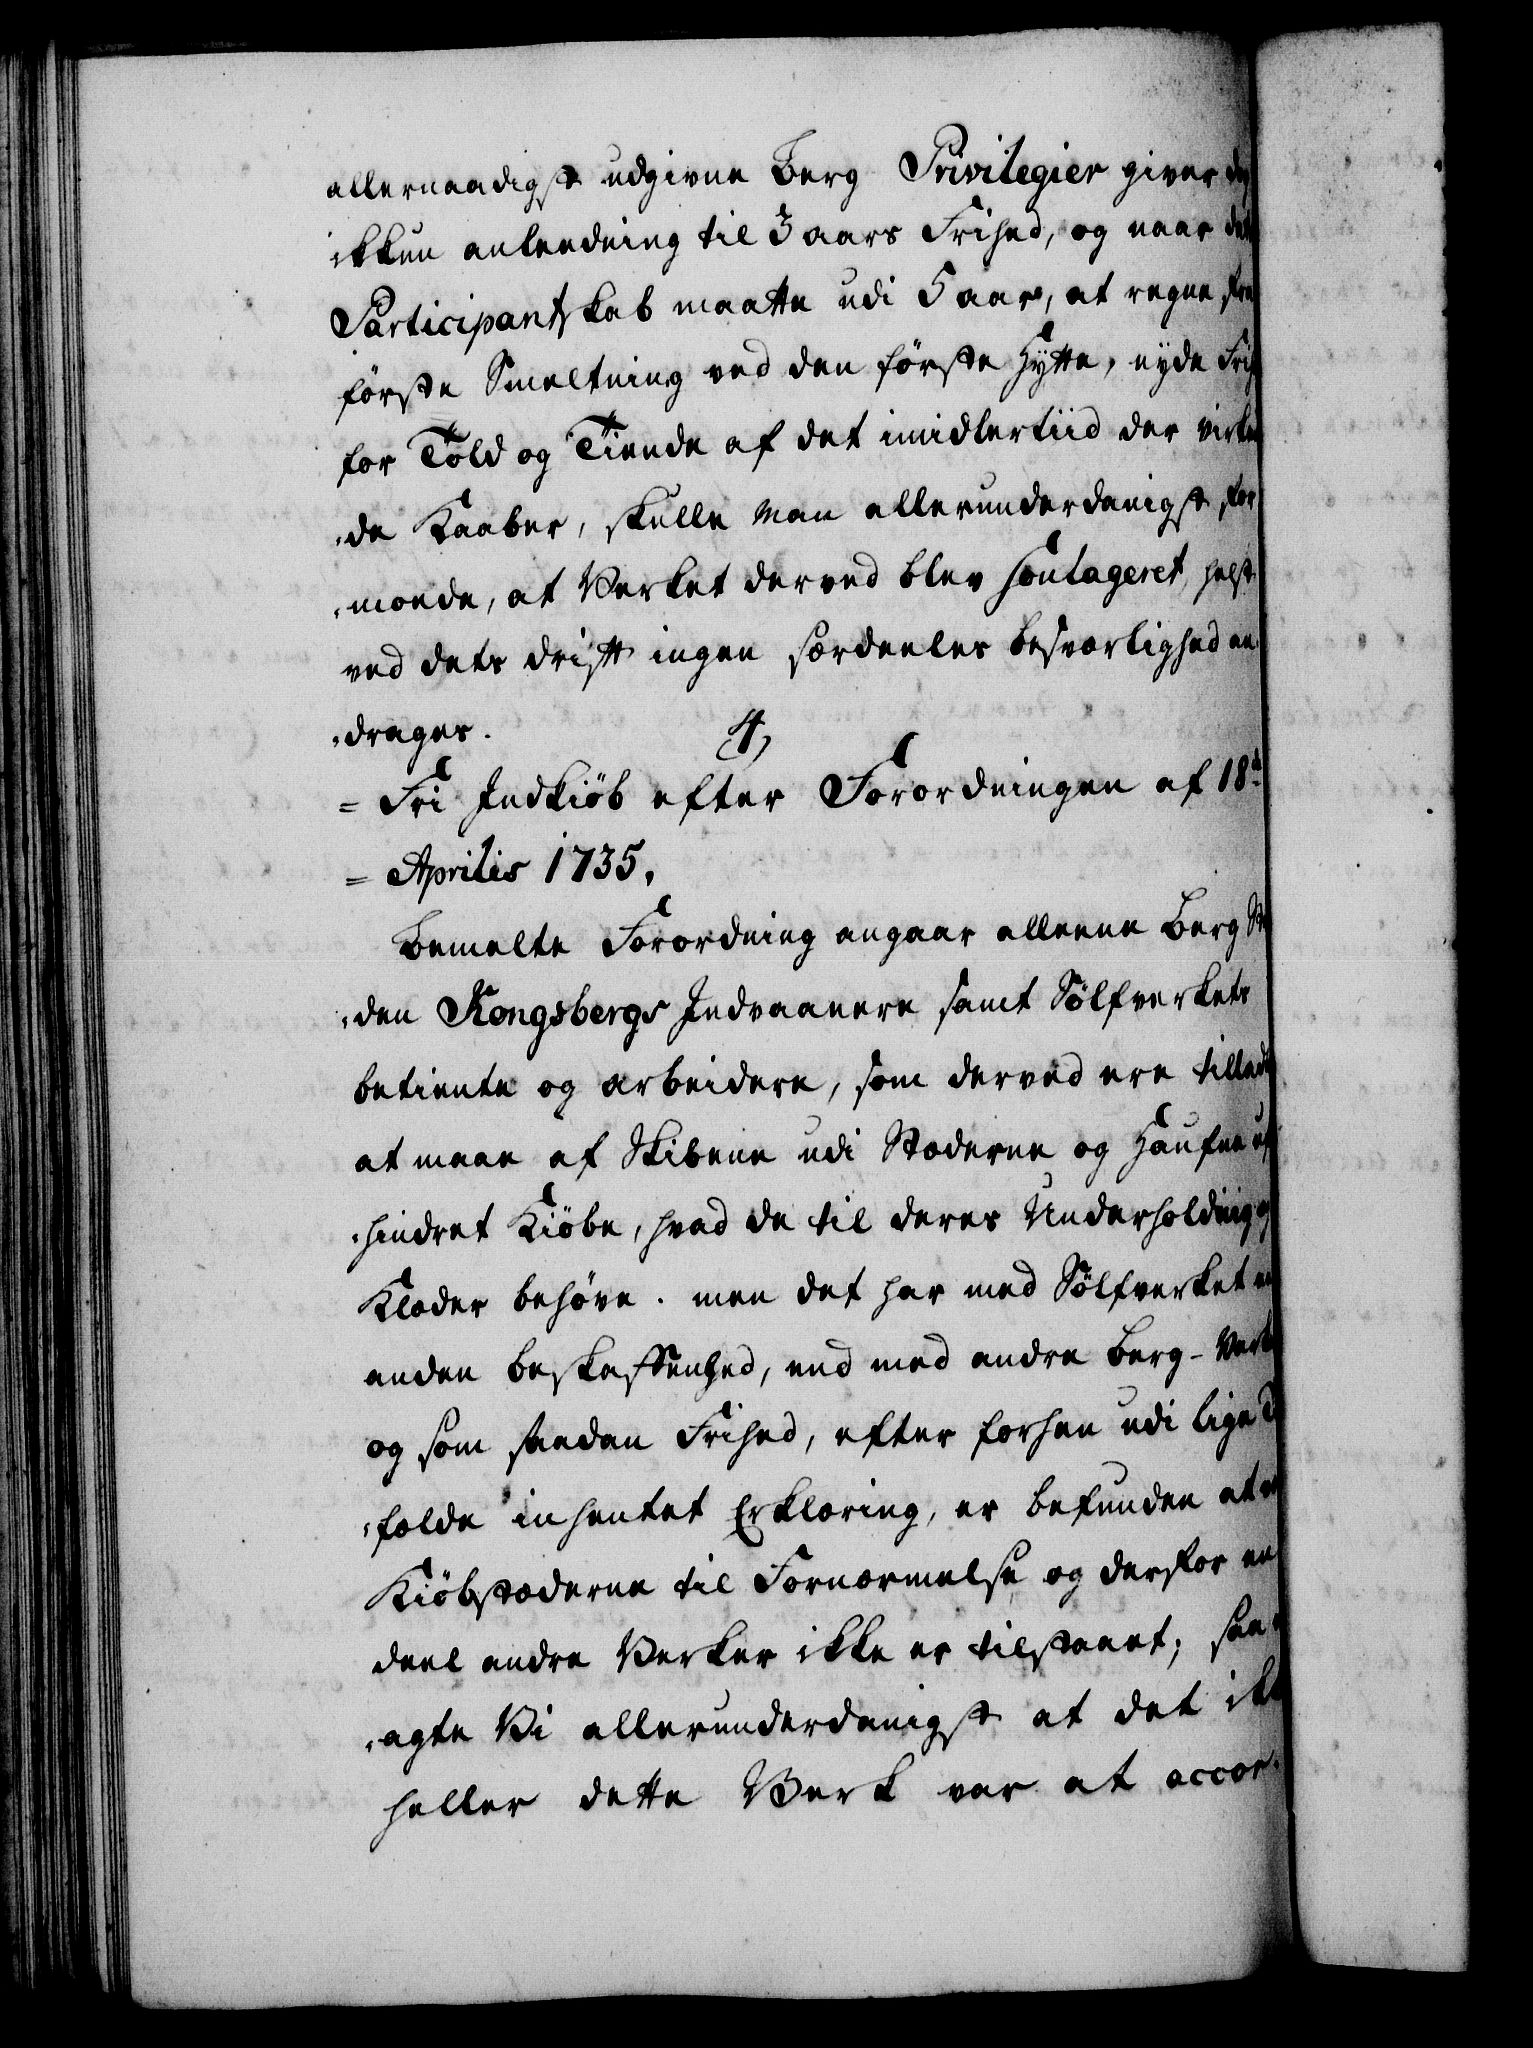 allernaadigst udgivne Berg Privilegier giver
ikkun anleedning til 3 aars Frihed, og naar
Participantskab maatte udi 5 aar, at regne fra
første Smeltning ved den første Hytte, nyde
for Told og Tiende af det imidlertiid der
de Kaaber, skulle man allerunderdanigst for
moede, at Verket derved blev soulageret, helst
ved dets drift ingen særdeeles besværlighed an
drages.
4,
= Frí Indkiöb efter Forordningen af 18de
= Aprilis 1735.
Bemelte Forordning angaar alleene Berg
den Kongsbergs Indvaanere samt Sölfverkets
betiente og arbeidere, som derved ere
at maae af Skibene udi Stæderne og Haufne
hindret Kiöbe, hvad de til deres Underholdning og
Klæder behöve. men det har med Sölfverket
anden beskaffenhed, end med andre Berg-
og som saadan Frihed, efter forhen udi lige
fælde inhentet Erklæring, er befunden at
Kiöbstæderne til Fornærmelse og derfor en
deel andre Verker ikke er tilstaaet; saa
agte Vi allerunderdanigst at det
heller dette Verk var at accor-